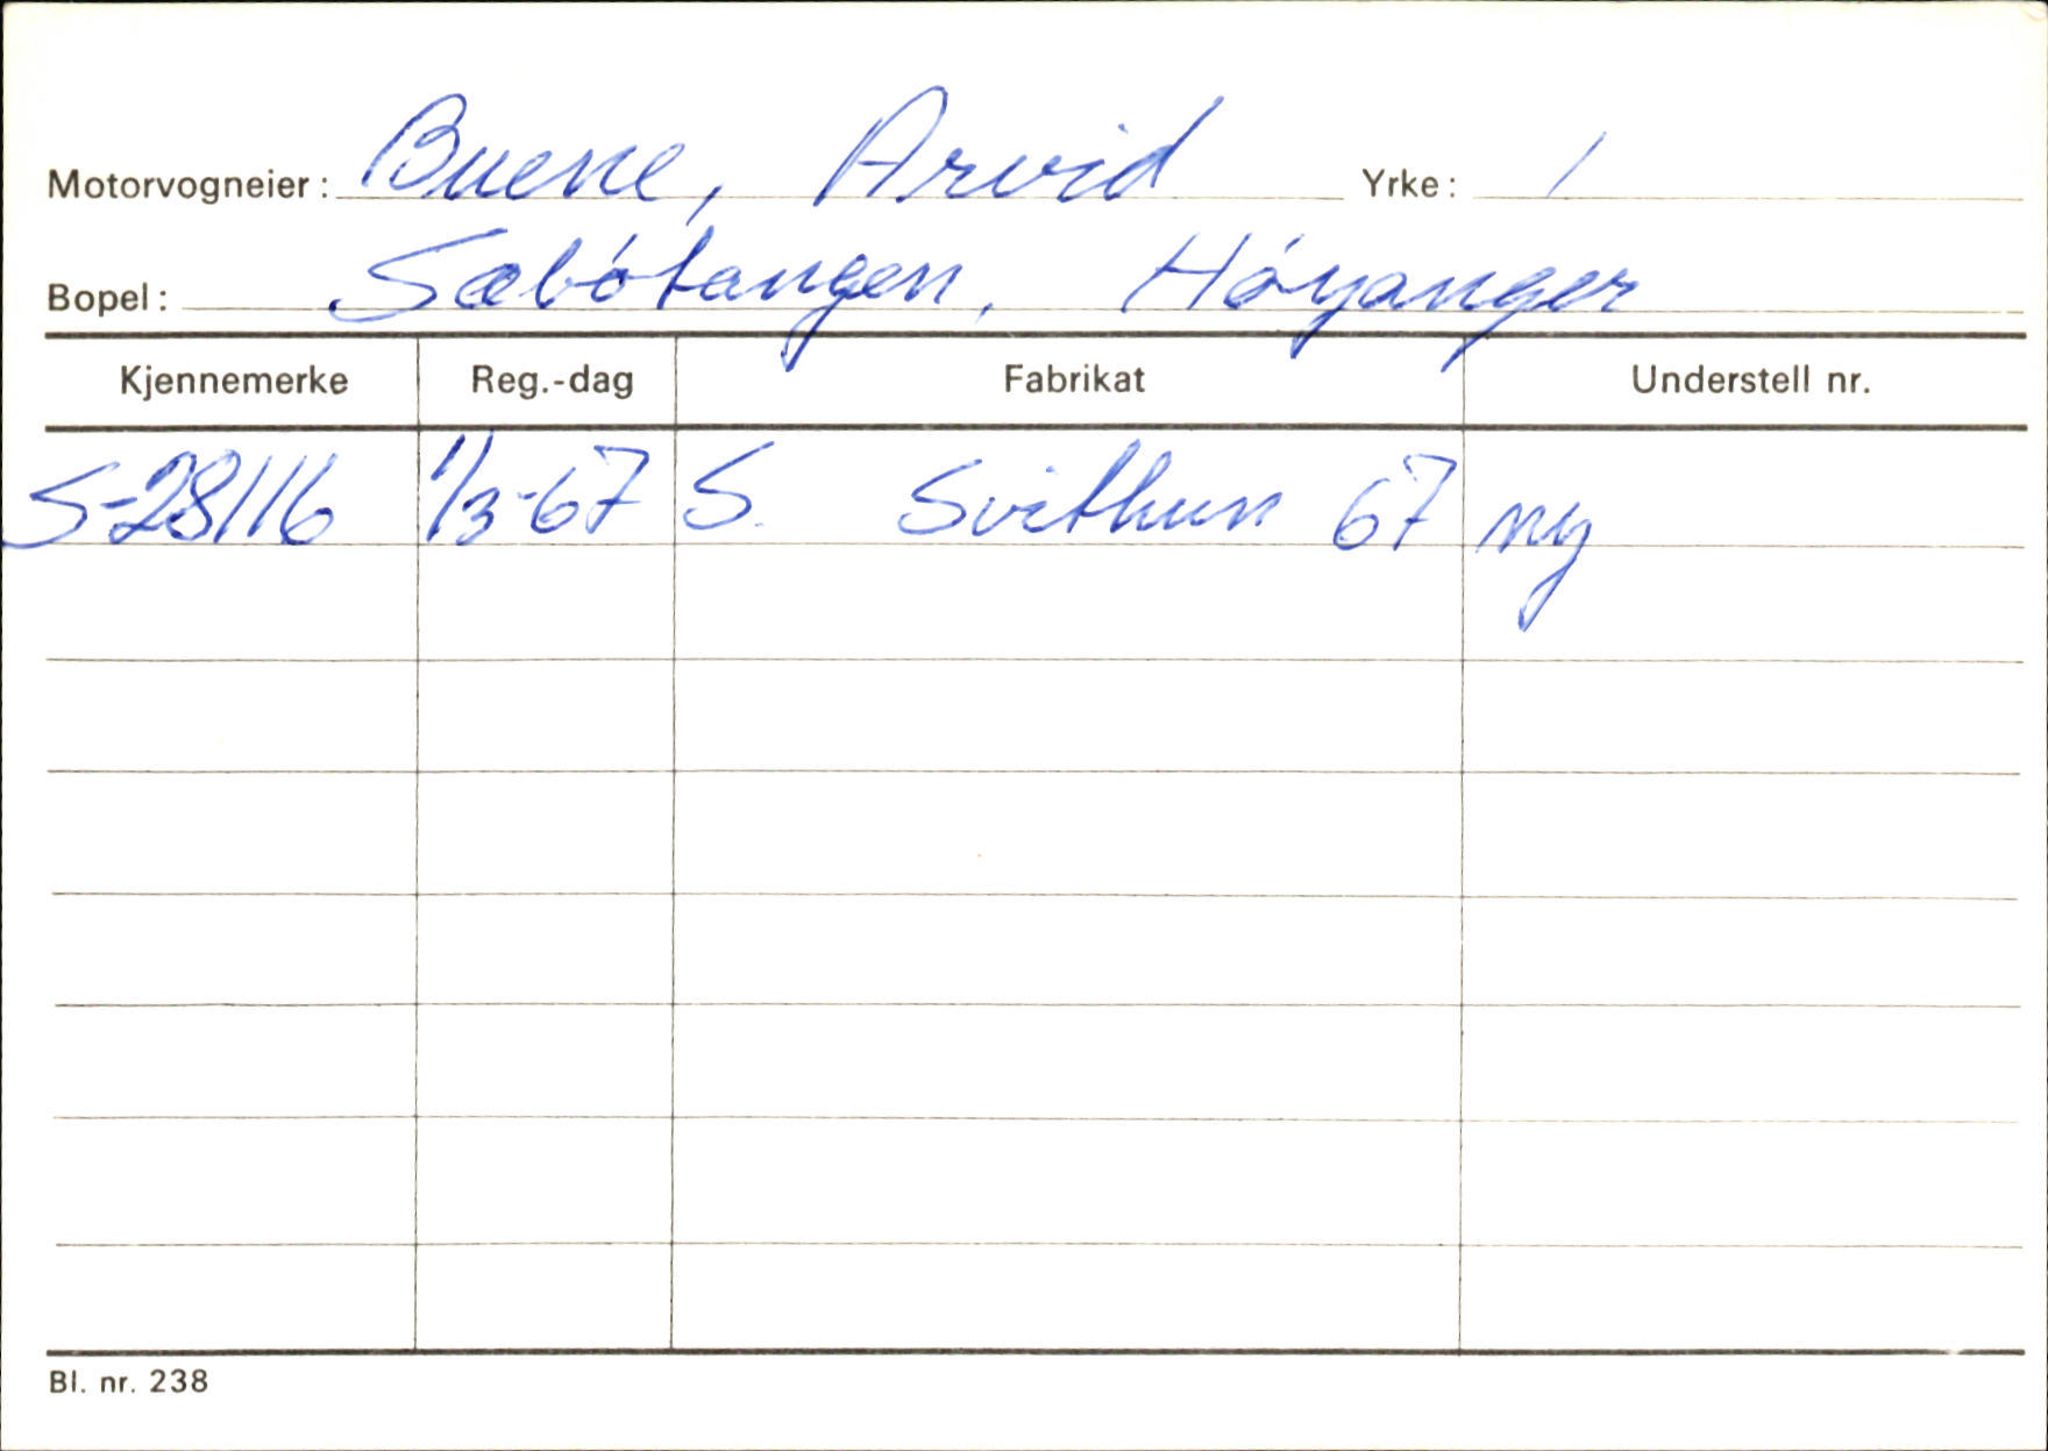 Motorvogneier: Buene, Arvid Yrke: /
Bopel: Sæbötangen, Höyanger
Kjennemerke Reg.-dag Fabrikat Understell nr.
S-28116 1/3-67 S. Svithun 67 ny
Bl. nr. 238